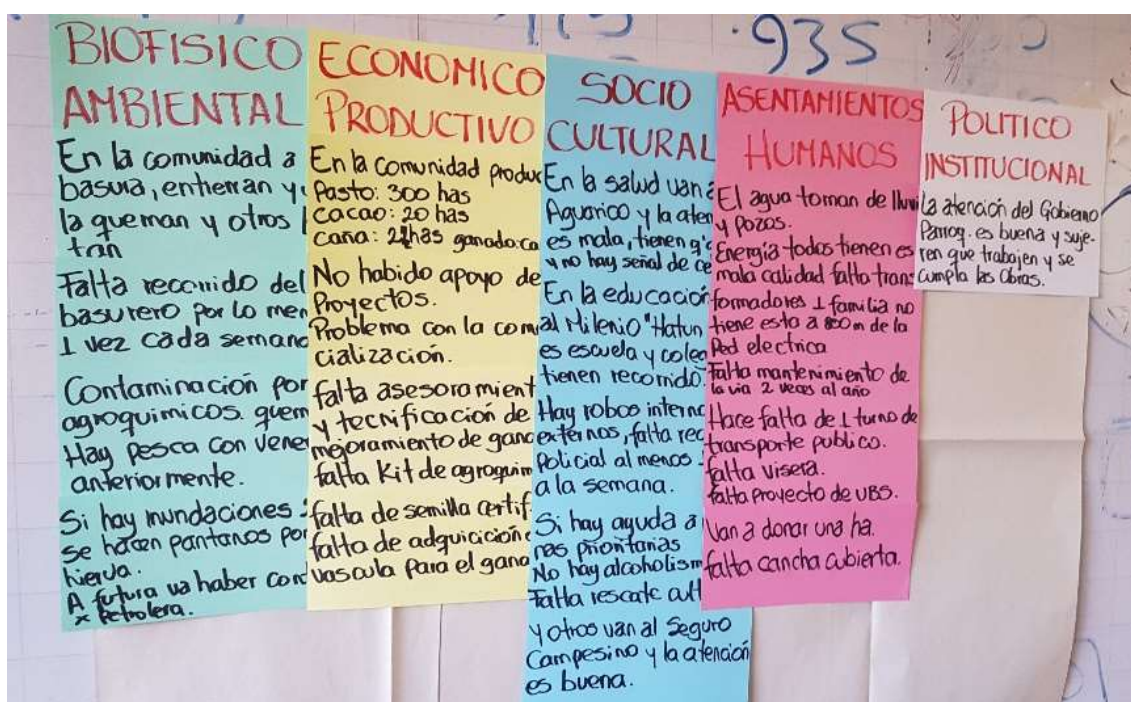 BIOFISICO
AMBIENTAL
En la comunidad a
basura, entierran y
la queman y otros
tran
Falta recorrido del
basurero por lo men
1 vez cada semana
Contaminación por
agroquimicos. quem
Hay pesca con vene
anteriormente.
Si hay inundaciones
se hacen pantanos por
hierva.
A futura va haber con
x Petrolera.
ECONOMICO
PRODUCTIVO
En la comunidad produc
Pasto: 300 has
Cacao: 20 has
Caña: has ganado: ca
No habido apoyo de
Proyectos.
Problema con la com
cialización.
falta asesoramient
y tecnificación de
mejoramiento de gana
falta Kit de agroquim
falta de semilla certif
falta de adquicición
vascula para el gana
SOCIO
CULTURAL
En la salud van a
Aguarico y la aten
es mala, tienen q'
y no hay señal de ce
En la educación
al Milenio "Hatun
es escuela y coleg
tienen recorrido.
Hay robos interno
externos, falta rec
Policial al menos
a la semana.
Si hay ayuda a
nas prioritarias
No hay alcoholism
Falta rescate cult
y otros van al Seguro
Campesino y la atención
es buena.
ASENTAMIENTOS
HUMANOS
El agua toman de lluvi
y Pozos.
Energía todos tienen es
mala calidad falta trans
formadores 1 familia no
tiene esta a 800 m de la
Red electrica
Falta mantenimiento de
la via 2 veces al año
Hace falta de 1 turno de
transporte publico.
falta visera.
falta proyecto de UBS.
Van a donar una ha.
falta cancha cubierta.
POLITICO
INSTITUCIONAL
La atención del Gobierno
Parroq. es buena y suje-
ren que trabajen y se
cumpla las Obras.
935